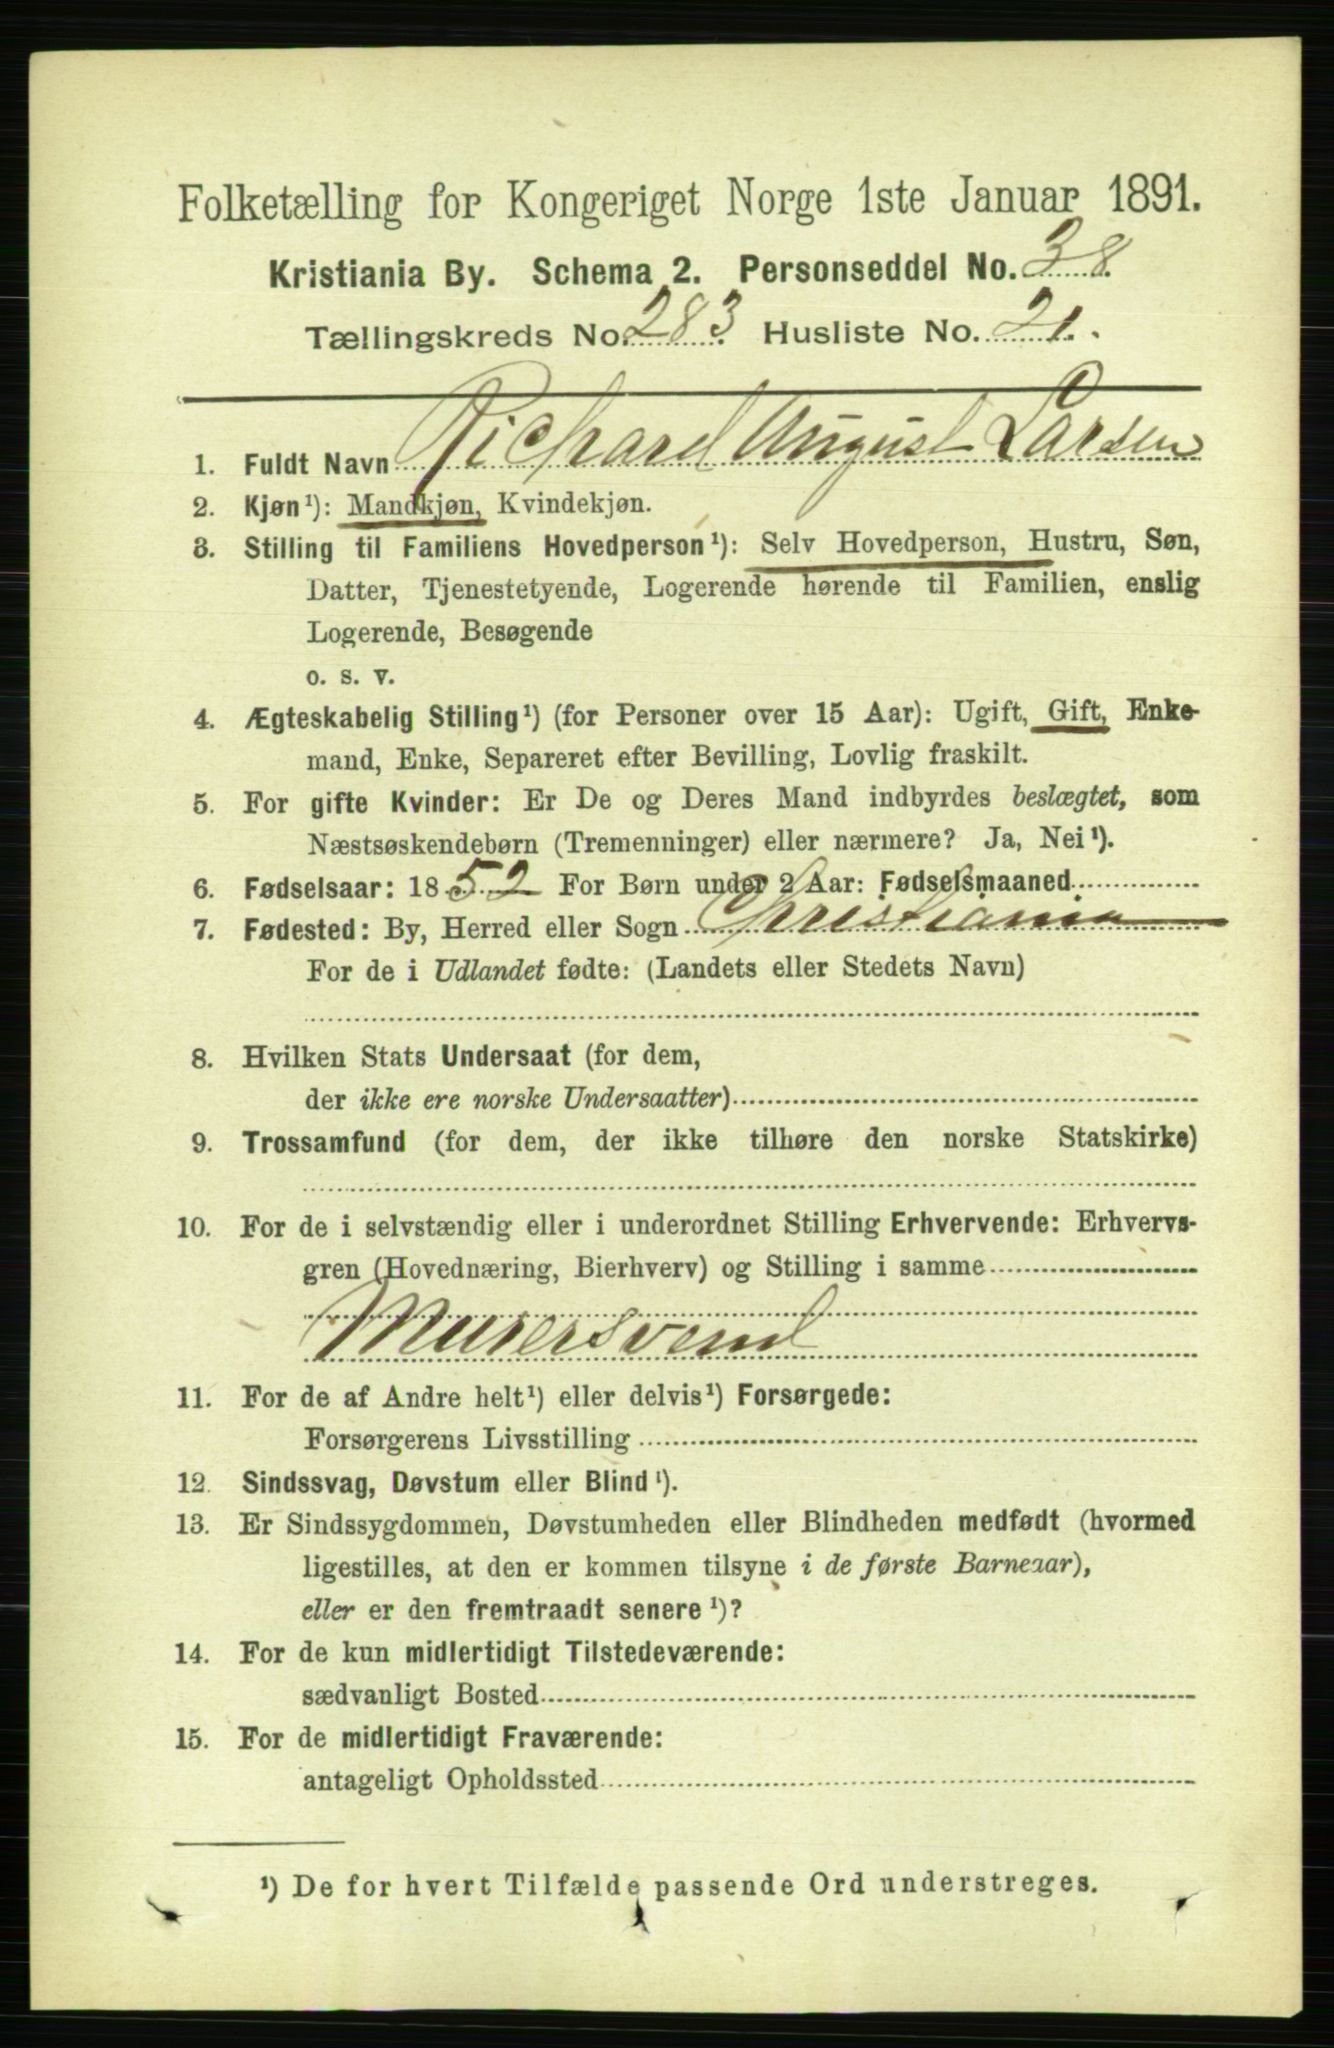 Folketælling for Kongeriget Norge 1ste Januar 1891.
Kristiania By. Schema 2. Personseddel No. 38
Tællingskreds No. 283 Husliste No. 21.
1. Fuldt Navn Richard August Larsen
2. Kjøn¹): Mandkjøn, Kvindekjøn.
3. Stilling til Familiens Hovedperson¹): Selv Hovedperson, Hustru, Søn,
Datter, Tjenestetyende, Logerende hørende til Familien, enslig
Logerende, Besøgende
o. s. v.
4. Ægteskabelig Stilling¹) (for Personer over 15 Aar): Ugift, Gift, Enke-
mand, Enke, Separeret efter Bevilling, Lovlig fraskilt.
5. For gifte Kvinder: Er De og Deres Mand indbyrdes beslægtet, som
Næstsøskendebørn (Tremenninger) eller nærmere? Ja, Nei¹).
6. Fødselsaar: 1852 For Børn under 2 Aar: Fødselsmaaned
7. Fødested: By, Herred eller Sogn Christiania
For de i Udlandet fødte: (Landets eller Stedets Navn)
8. Hvilken Stats Undersaat (for dem,
der ikke ere norske Undersaatter)
9. Trossamfund (for dem, der ikke tilhøre den norske Statskirke)
10. For de i selvstændig eller i underordnet Stilling Erhvervende: Erhvervs-
gren (Hovednæring, Bierhverv) og Stilling i samme
Murersvend
11. For de af Andre helt¹) eller delvis¹) Forsørgede:
Forsørgerens Livsstilling
12. Sindssvag, Døvstum eller Blind¹).
13. Er Sindssygdommen, Døvstumheden eller Blindheden medfødt (hvormed
ligestilles, at den er kommen tilsyne i de første Barneaar),
eller er den fremtraadt senere¹)?
14. For de kun midlertidigt Tilstedeværende:
sædvanligt Bosted
15. For de midlertidigt Fraværende:
antageligt Opholdssted
¹) De for hvert Tilfælde passende Ord understreges.